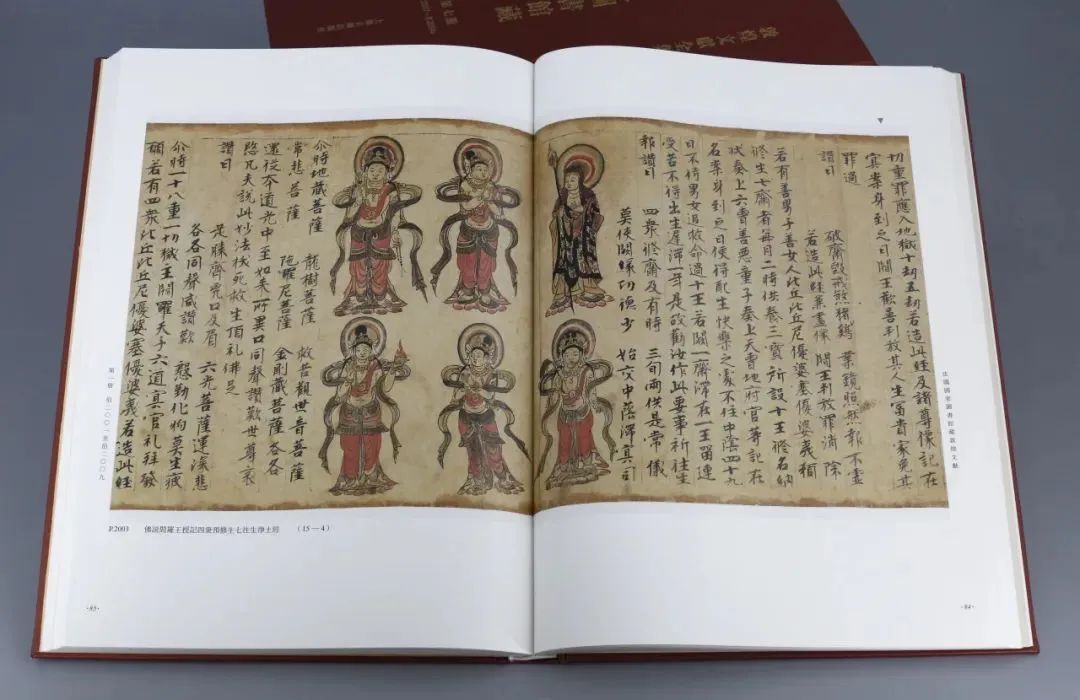 敦煌文獻全
圖書館藏
法國國家圖書館藏敦煌文獻
切重罪應入地獄十劫五劫若造此經及諸尊像記在
冥案身到之日閻王歡喜判放其人生富貴家免其
罪過
讚曰 破齋毀戒煞猪鷄 業鏡照然報不虛
若造此經兼畫像 閻王判放罪消除
若有善男子善女人比丘比丘尼優婆塞優婆義預
修生七齋者每月二時供養三寶所設十王修名納
狀奏上六曹善惡童子奏上天曹地府官等記在
名案身到之日便得配生快樂之處不住中陰四十九
日不待男女追救命過十王若闕一齋滯在一王留連
受苦不得出生遲滯一年是故勸汝作此要事祈往生
報讚曰 四衆修齋及有時 三旬兩供是常儀
莫使闕緣功德少 始交中陰滯冥司
·84·
尒時地藏菩薩 龍樹菩薩 救苦觀世音菩薩
常悲菩薩 陁羅尼菩薩 金剛藏菩薩各各
還從本道光中至如來所異口同聲讚歎世尊哀
愍凡夫說此妙法拔死救生頂礼佛足
讚曰 足膝齊兇口及眉 六光菩薩運深悲
各各同聲咸讚歎 慇懃化物莫生疲
尒時一十八重一切獄王閻羅天子六道冥官礼拜發
願若有四衆比丘比丘尼優婆塞優婆義若造此經
第一册 伯二〇〇一至伯二〇〇九
P.2003 佛說閻羅王授記四衆預修生七往生淨土經 （15—4）
·85·